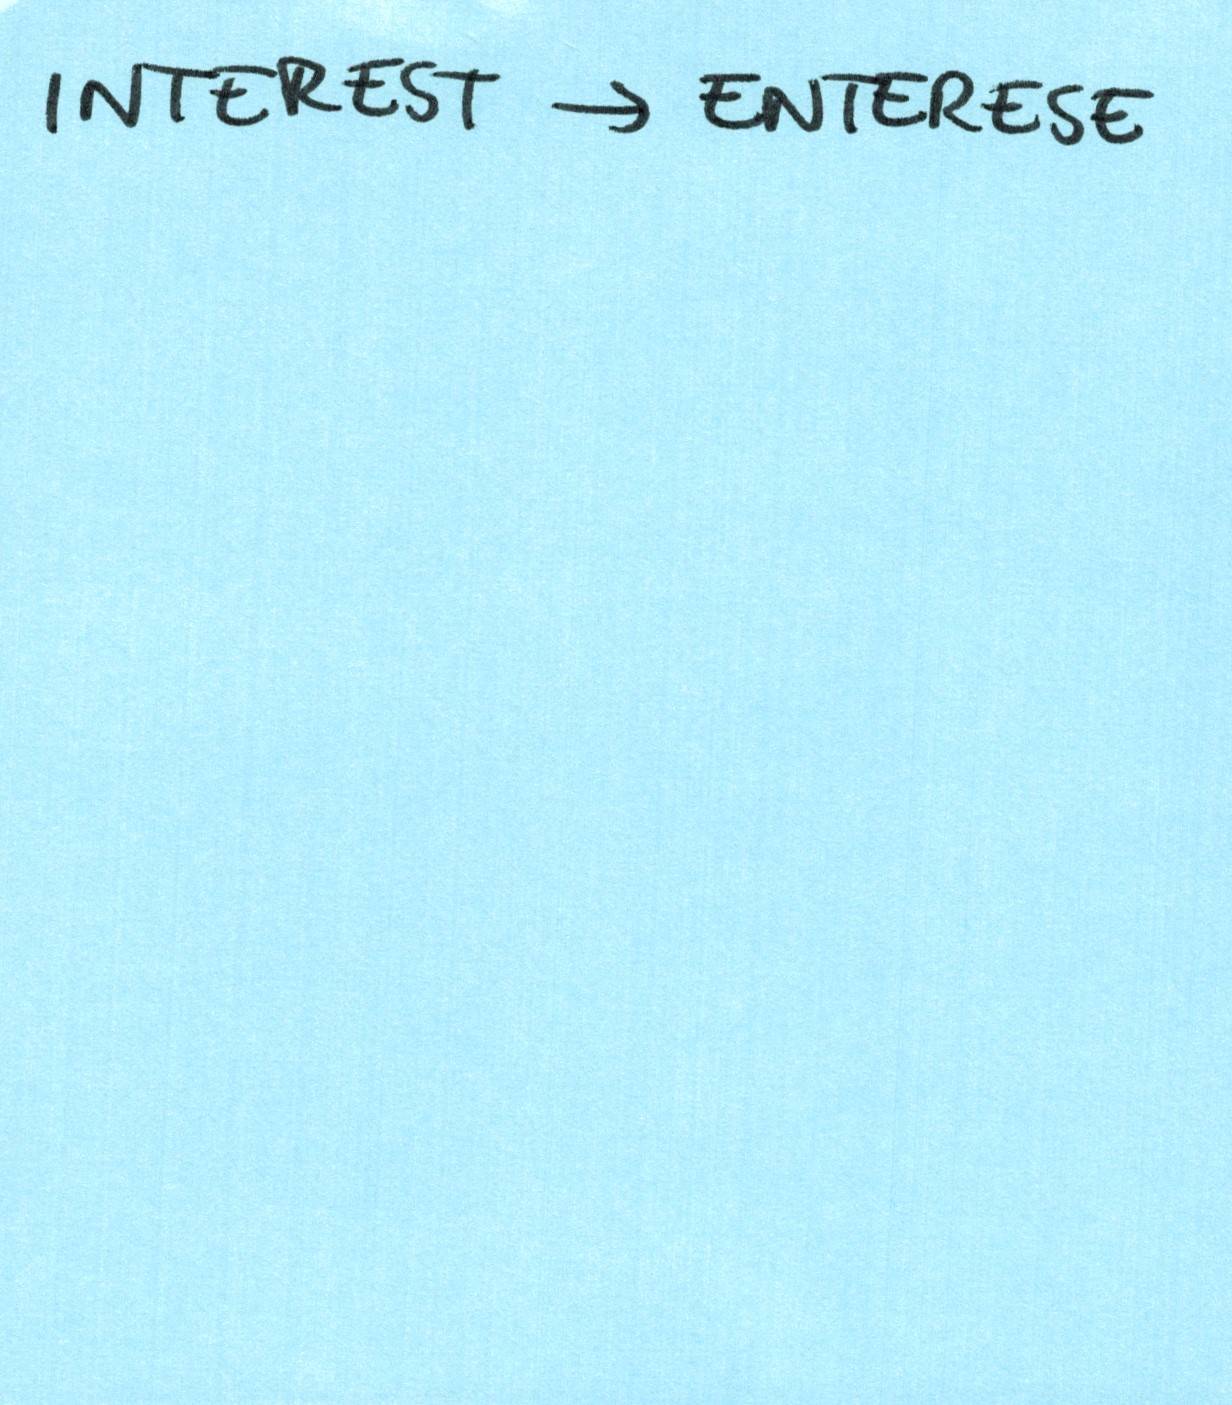 INTEREST → ENTERESE